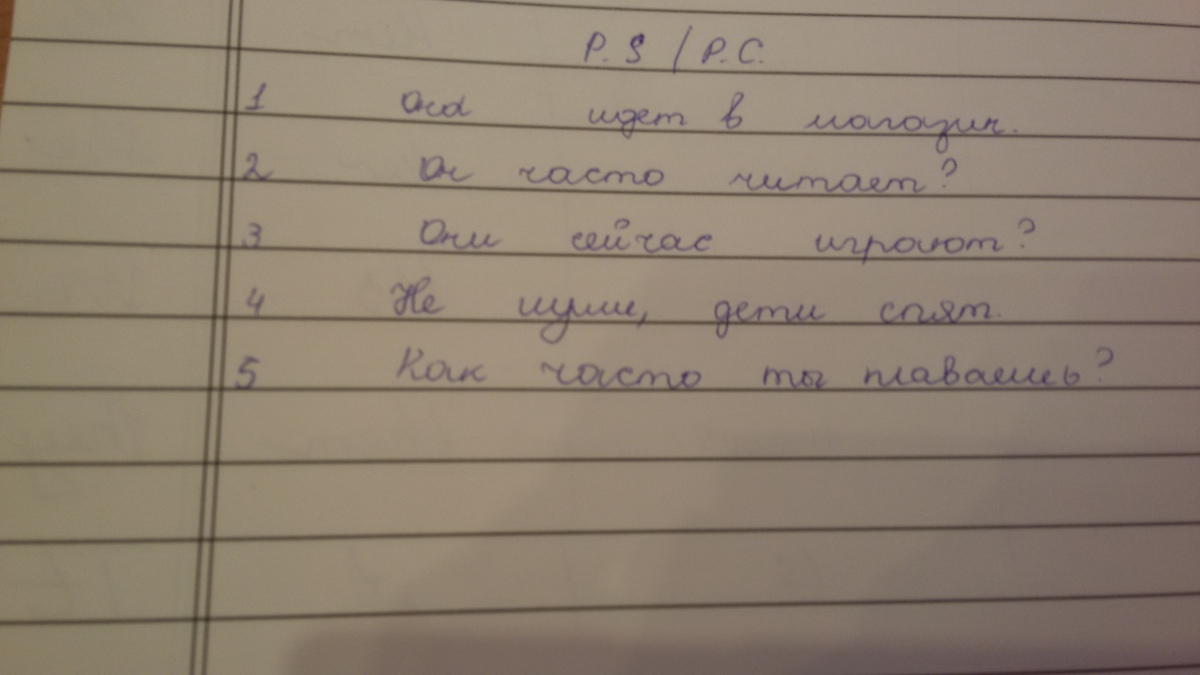 P.S / P.C.
1 Она идет в магазин.
2 Он часто читает?
3 Они сейчас играют?
4 Не шуми, дети спят.
5 Как часто ты плаваешь?